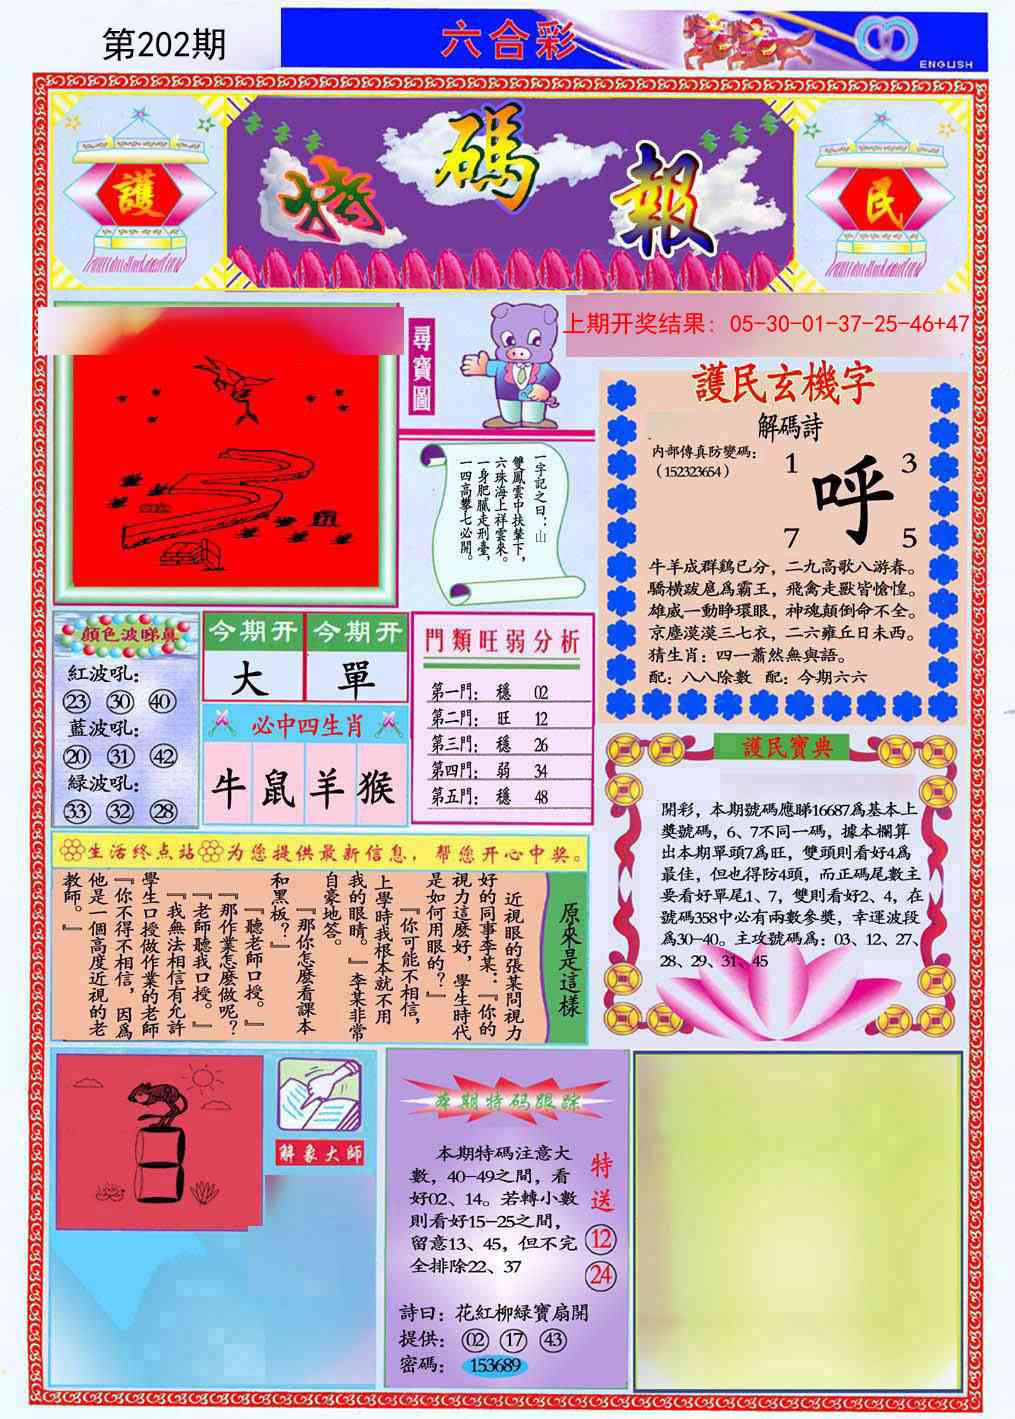 第202期
六合彩
ENGLISH
護
特碼報
民
上期开奖结果：05-30-01-37-25-46+47
尋寶圖
一字記之曰：山
雙鳳雲中扶輦下，
六珠海上祥雲來。
一身肥膩走刑臺，
一四高攀七必開。
護民玄機字
解碼詩
内部傳真防變碼：
（152323654）
1
3
呼
7
5
牛羊成群鷄已分，二九高歌八游春。
驕橫跋扈爲霸王，飛禽走獸皆愴惶。
雄威一動睁環眼，神魂顛倒命不全。
京塵漠漠三七衣，二六雍丘日未西。
猜生肖：四一蕭然無與語。
配：八八除數 配：今期六六
顔色波睇真
紅波吼：
23 30 40
藍波吼：
20 31 42
緑波吼：
33 32 28
今期开
大
今期开
單
必中四生肖
牛鼠羊猴
門類旺弱分析
第一門：穩 02
第二門：旺 12
第三門：穩 26
第四門：弱 34
第五門：穩 48
護民寶典
開彩，本期號碼應睇16687爲基本上
獎號碼，6、7不同一碼，據本欄算
出本期單頭7爲旺，雙頭則看好4爲
最佳，但也得防4頭，而正碼尾數主
要看好單尾1、7，雙則看好2、4，在
號碼358中必有兩數參獎，幸運波段
爲30-40。主攻號碼爲：03、12、27、
28、29、31、45
生活终点站 为您提供最新信息，帮您开心中奖。
原來是這樣
近視眼的張某問視力
好的同事李某：『你的
視力這麼好，學生時代
是如何用眼的？』
『你可能不相信，
上學時我根本就不用
我的眼睛。』李某非常
自豪地答。
『那你怎麼看課本
和黑板？』
『聽老師口授。』
『那作業怎麼做呢？
『老師聽我口授。』
『我無法相信有允許
學生口授做作業的老師
『你不得不相信，因爲
他是一個高度近視的老
教師。』
解象大師
本期特码跟踪
本期特碼注意大
數，40-49之間，看
好02、14。若轉小數
則看好15-25之間，
留意13、45，但不完
全排除22、37
特送
12
24
詩曰：花紅柳緑寶扇開
提供：02 17 43
密碼：153689